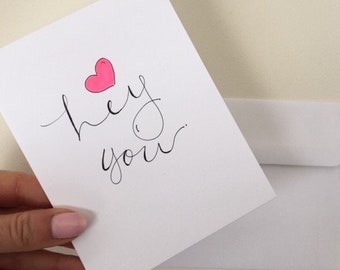 hey
you.